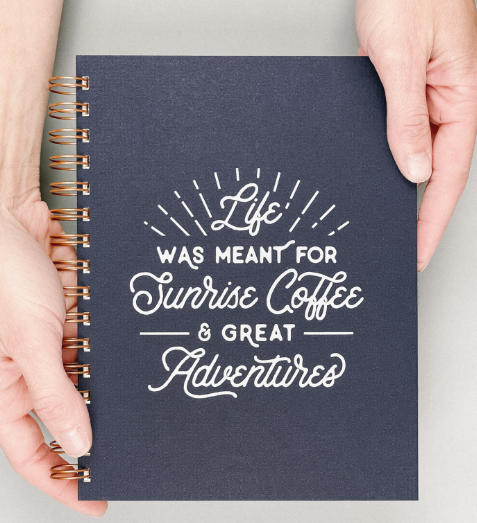 Life
WAS MEANT FOR
Sunrise Coffee
& GREAT
Adventures